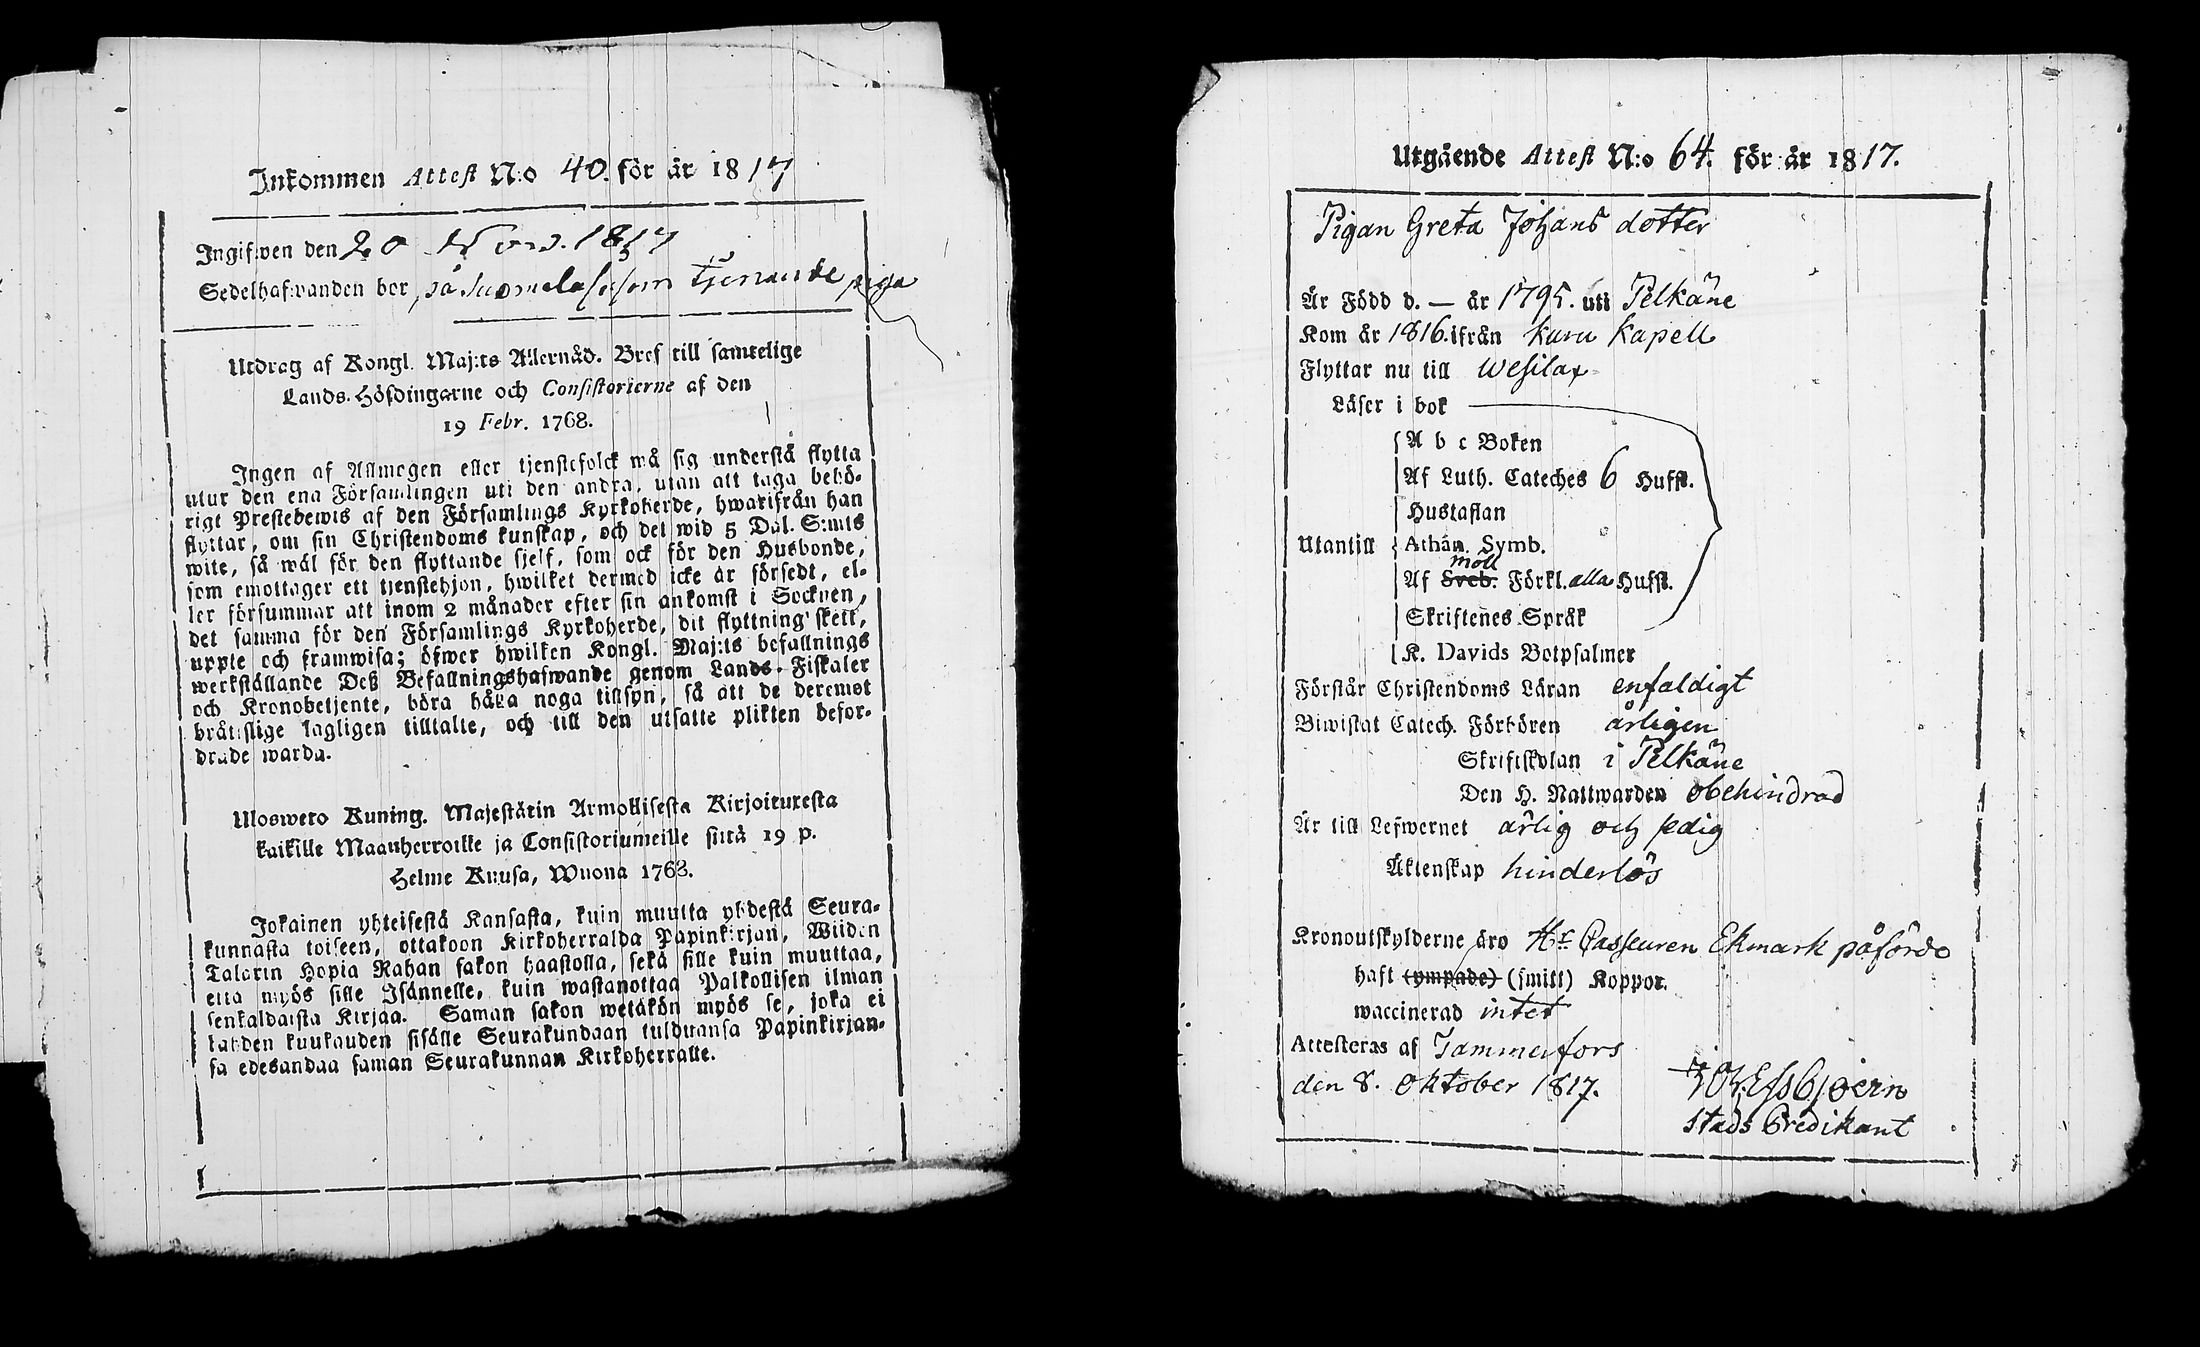 Inkommen Attest N:o 40. för år 1817
Ingifwen den 20 Nov. 1817
Sedelhafwanden bor på Suomela som tjenande piga
Utdrag af Kongl. Maj:ts Allernåd. Bref till samtelige
Lands-Höfdingarne och Consistorierne af den
19 Febr. 1768.
Ingen af Allmogen eller tjenstefolck må sig understå flytta
utur den ena Församlingen uti den andra, utan att taga behö-
rigt Prestebewis af den Församlings Kyrkoherde, hwarifrån han
flyttar, om sin Christendoms kunskap, och det wid 5 Dal. S:mts
wite, så wäl för den flyttande sjelf, som ock för den Husbonde,
som emottager ett tjenstehjon, hwilket dermed icke är försedt, el-
ler försummar att inom 2 månader efter sin ankomst i Socknen,
det samma för den Församlings Kyrkoherde, dit flyttning skett,
uppte och framwisa; öfwer hwilken Kongl. Maj:ts befallnings
werkställande Deß Befallningshafwande genom Lands-Fiskaler
och Kronobetjente, böra hålla noga tillsyn, så att de deremot
bråtslige lagligen tilltalte, och till den utsatte plikten befor-
drade warda.
Ulosweto Kuning. Majestätin Armollisesta Kirjoituxesta
kaikille Maanherroille ja Consistoriumeille siitä 19 p.
Helme Kuusa, Wuona 1768.
Jokainen yhteisestä Kansasta, kuin muutta yhdestä Seura-
kunnasta toiseen, ottakoon Kirkoherralda Papinkirjan, Wiiden
Talarin Hopia Rahan sakon haastolla, sekä sille kuin muuttaa,
että myös sille Isännelle, kuin wastanottaa Palkollisen ilman
senkaldaista Kirjaa. Saman sakon wetäkön myös se, joka ei
kahden kuukauden sisälle Seurakundaan tulduansa Papinkirjan-
sa edesandaa saman Seurakunnan Kirkoherralle.
Utgående Attest N:o 64. för år 1817.
Pigan Greta Johans dotter
Är Född d. — år 1795. uti Pelkäne
Kom år 1816. ifrån Kuru Kapell
Flyttar nu till Wesilax
Läser i bok
A b c Boken
Af Luth. Cateches 6 Hufst.
Hustaflan
Utantill Athan. Symb.
moll
Af Sveb. Förkl. alla Hufst.
Skriftenes Språk
K. Davids Botpsalmer
Förstår Christendoms Läran enfaldigt
Biwistat Catech. Förhören årligen
Skriftskolan i Pelkäne
Den H. Nattwarden obehindrad
Är till Lefwernet ärlig och sedig
Äktenskap hinderlös
Kronoutskylderne äro Hr Casseuren Ekmark påförde
haft (ympade) (smitt) Koppor.
waccinerad intet
Attesteras af Tammerfors
den 8. Oktober 1817.
Essbjoern
Stads Predikant